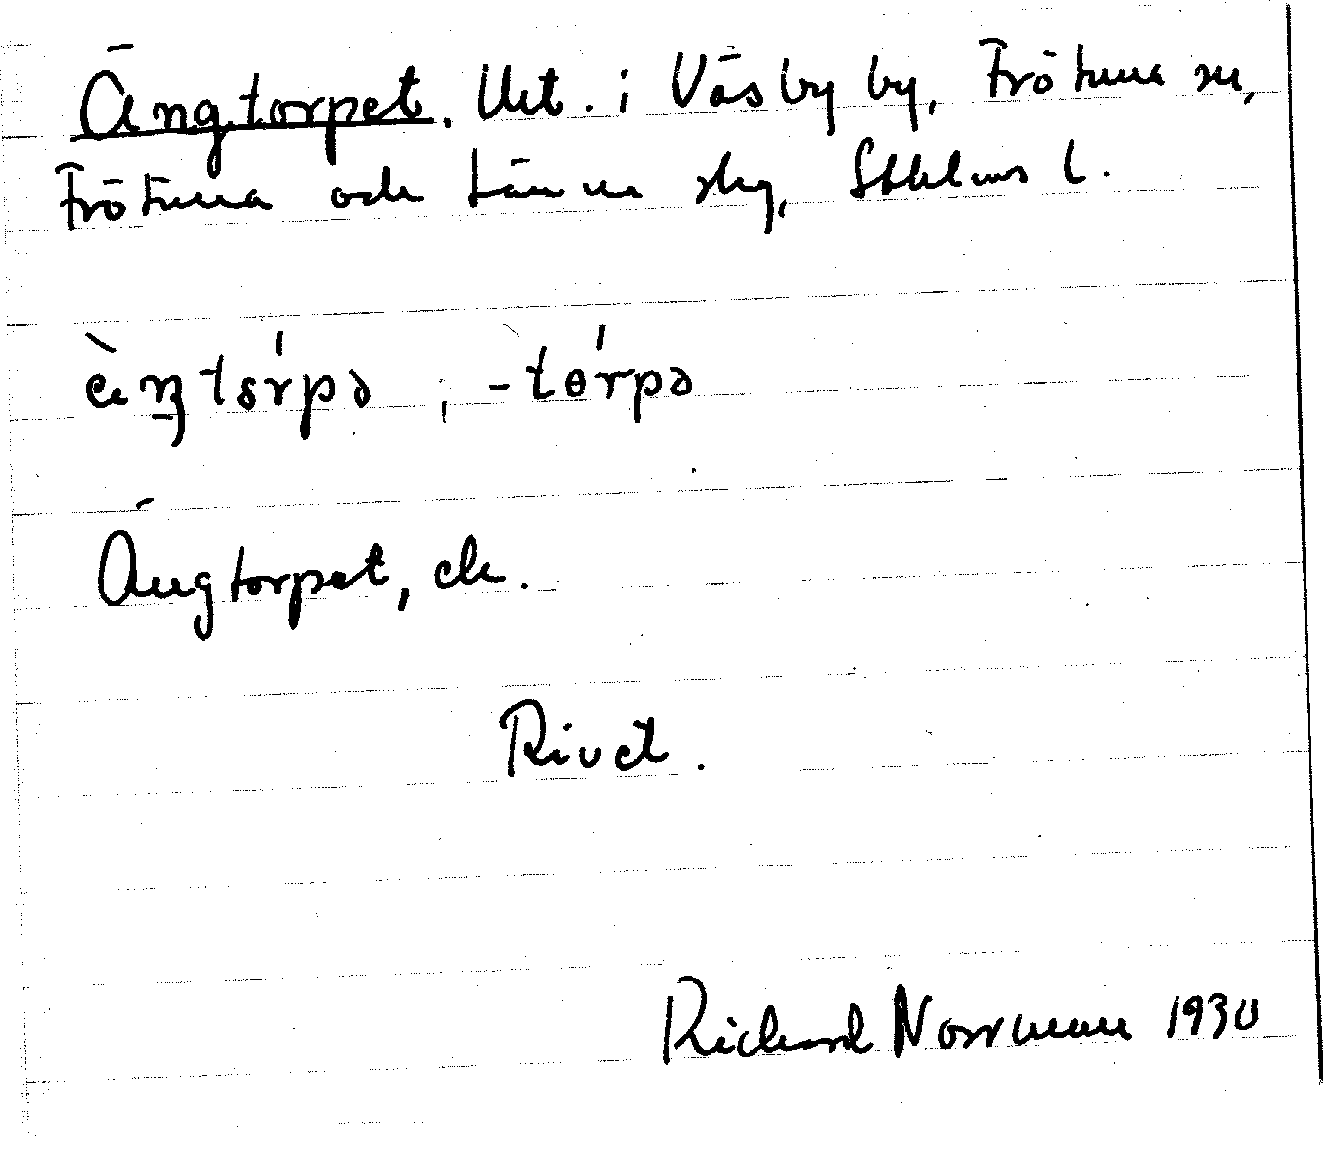 Ängtorpet. Utt. i Väsby by, Frötuna sn,
Frötuna och Länna skg, Sthlms l.
Ängtorpet, ek.
Rivet.
Richard Norrman 1930